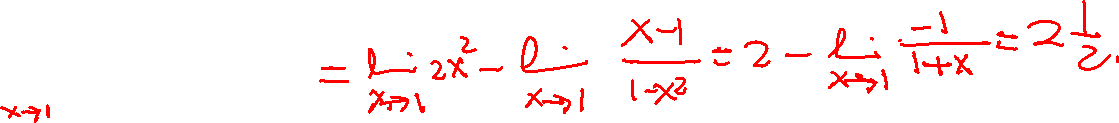 = lim x→1 2x² − lim x→1 (x−1)/(1−x²) = 2 − lim x→1 (−1)/(1+x) = 2 1/2.
x→1